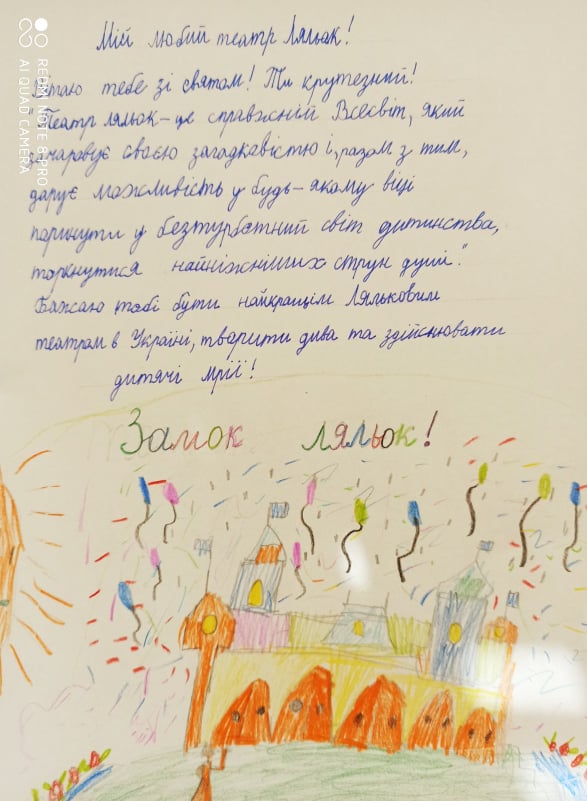 Мій любий театр Ляльок!
Вітаю тебе зі святом! Ти крутезний!
"Театр ляльок – це справжній Всесвіт, який
зачаровує своєю загадковістю і, разом з тим,
дарує можливість у будь-якому віці
поринути у безтурботний світ дитинства,
торкнутися найніжніших струн душі".
Бажаю тобі бути найкращим Ляльковим
театром в Україні, творити дива та здійснювати
дитячі мрії!
Замок ляльок!
REDMI NOTE 8 PRO
AI QUAD CAMERA